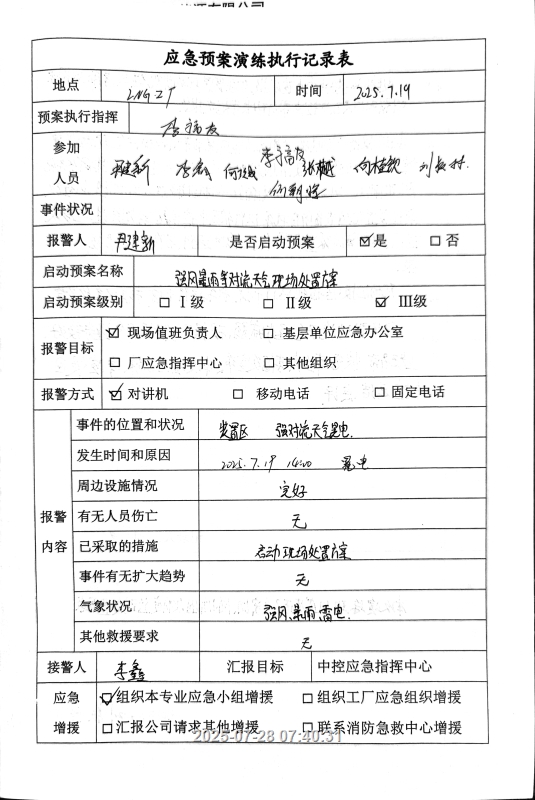 应急预案演练执行记录表
地点 LNG工厂 时间 2025.7.19
预案执行指挥 李福友
参加
人员
事件状况
报警人 尹建新 是否启动预案 ☑是 □否
启动预案名称 强风暴雨等对流天气现场处置方案
启动预案级别 □Ⅰ级 □Ⅱ级 ☑Ⅲ级
报警目标 ☑现场值班负责人 □基层单位应急办公室
□厂应急指挥中心 □其他组织
报警方式 ☑对讲机 □移动电话 □固定电话
报警内容
事件的位置和状况 装置区 强对流天气雷电
发生时间和原因 2025.7.19 14:00 雷电
周边设施情况 完好
有无人员伤亡 无
已采取的措施 启动现场处置方案
事件有无扩大趋势 无
气象状况 强风、暴雨、雷电
其他救援要求 无
接警人 李鑫 汇报目标 中控应急指挥中心
应急增援 ☑组织本专业应急小组增援 □组织工厂应急组织增援
□汇报公司请求其他增援 □联系消防急救中心增援
2025-07-28 07:40:31